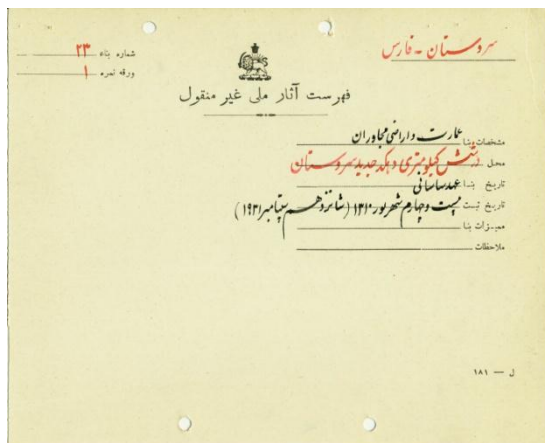 سروستان - فارس
شماره بناء ۲۳
ورقه نمره ۱
فهرست آثار ملی غیر منقول
مشخصات بنا عمارت و اراضی مجاوران
محل درشش کیلومتری دهکده جدید سروستان
تاریخ بنا عهد ساسانی
تاریخ ثبت بیست و چهارم شهریور ۱۳۱۰ (شانزدهم سپتامبر ۱۹۳۱)
ممیزات بنا
ملاحظات
ل — ۱۸۱